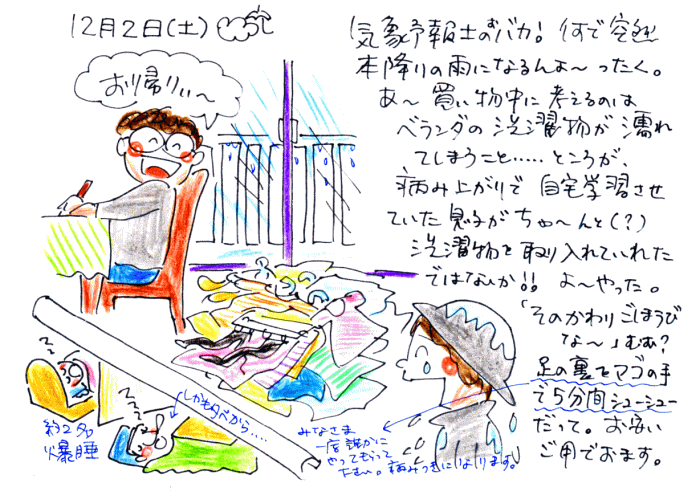 12月2日(土)
おり帰りぃ～
気象予報士のおバカ! 何で突然
本降りの雨になるんよ～ったく。
あ～買い物中に考えるのは
ベランダの洗濯物が濡れ
てしまうこと……ところが、
病み上がりで自宅学習させ
ていた息子がちゃ～んと(?)
洗濯物を取り入れていれた
ではないか!! よ～やった。
「そのかわりごほうび
な～」むあ?
足の裏をマゴの手
で5分間シューシュー
だって。お安い
ご用でおます。
しかも夕べから….
約2名
爆睡
みなさま
一度誰かに
やってもらって
下さい。病みつきになります。